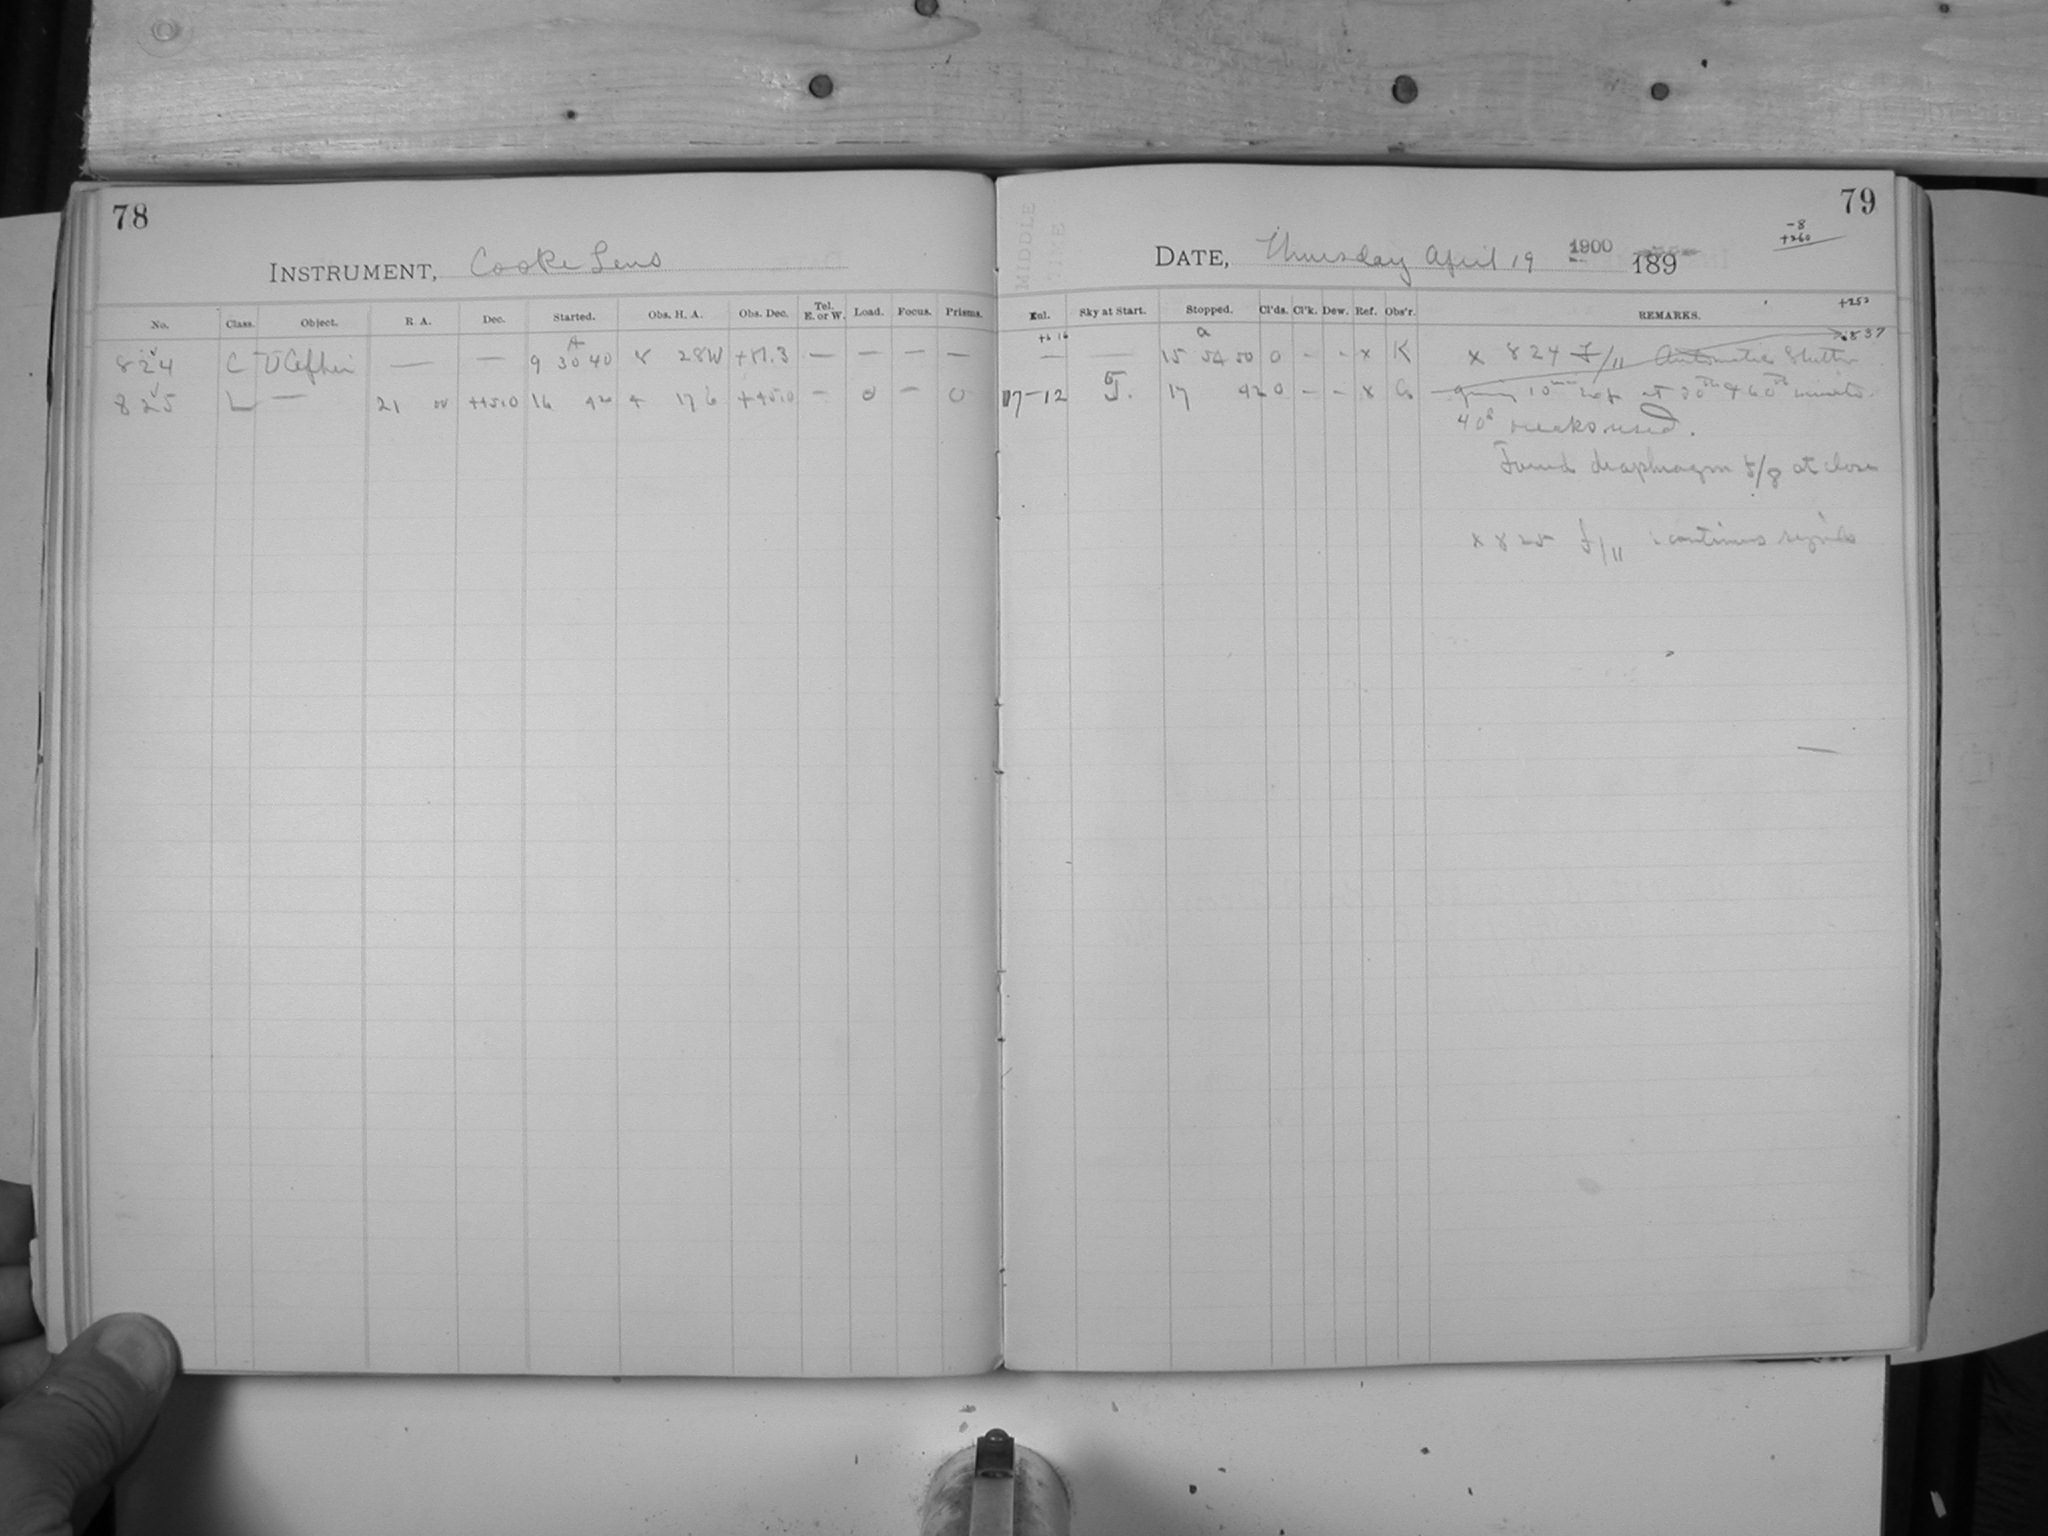 78
INSTRUMENT, Cooke Lens
No. Class. Object. R. A. Dec. Started. Obs. H. A. Obs. Dec. Tel. E. or W. Load. Focus. Prisms.
A
824 C U Cephei — — 9 30 40 8 28W +81.3 — — — —
825 L — 21 00 +45.0 16 42 0 4 17 6 +45.0 — 0 — 0
79
MIDDLE
TIME
-8
+260
DATE, Thursday April 19 1900 189
+252
Enl. Sky at Start. Stopped. Cl'ds. Cl'k. Dew. Ref. Obs'r. REMARKS.
a
— — 15 54 50 0 - - x K x 824 f/11 Automatic Shutter
837
17-12 17 42 0 - - x G giving 10 at 30th & 60th minutes
40s breaks used.
Found diaphragm f/8 at close
x 825 f/11